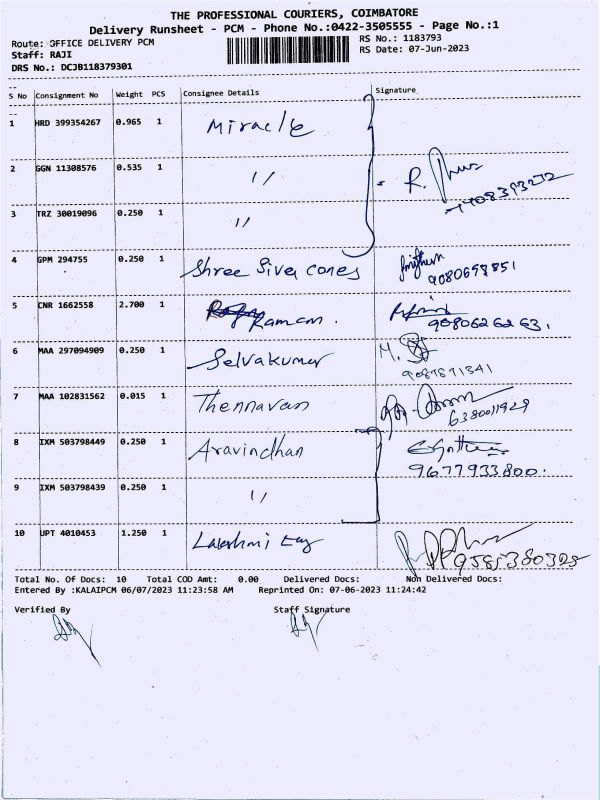 THE PROFESSIONAL COURIERS, COIMBATORE
Delivery Runsheet - PCM - Phone No.:0422-3505555 - Page No.:1
Route: OFFICE DELIVERY PCM
RS No.: 1183793
Staff: RAJI
RS Date: 07-Jun-2023
DRS No.: DCJB118379301
S No Consignment No Weight PCS Consignee Details Signature
1 HRD 399354267 0.965 1 Miracle
2 GGN 11308576 0.535 1 "
3 TRZ 30019096 0.250 1 "
4 GPM 294755 0.250 1 Shree Siva cones 9080697851
5 CNR 1662558 2.700 1 Raman. 9080626263.
6 MAA 297094909 0.250 1 Selvakumar
7 MAA 102831562 0.015 1 Thennavan 6380011929
8 IXM 503798449 0.250 1 Aravindhan 9677933800.
9 IXM 503798439 0.250 1 "
10 UPT 4010453 1.250 1 Lakshmi 9585380305
Total No. Of Docs: 10 Total COD Amt: 0.00 Delivered Docs: Non Delivered Docs:
Entered By :KALAIPCM 06/07/2023 11:23:58 AM Reprinted On: 07-06-2023 11:24:42
Verified By Staff Signature